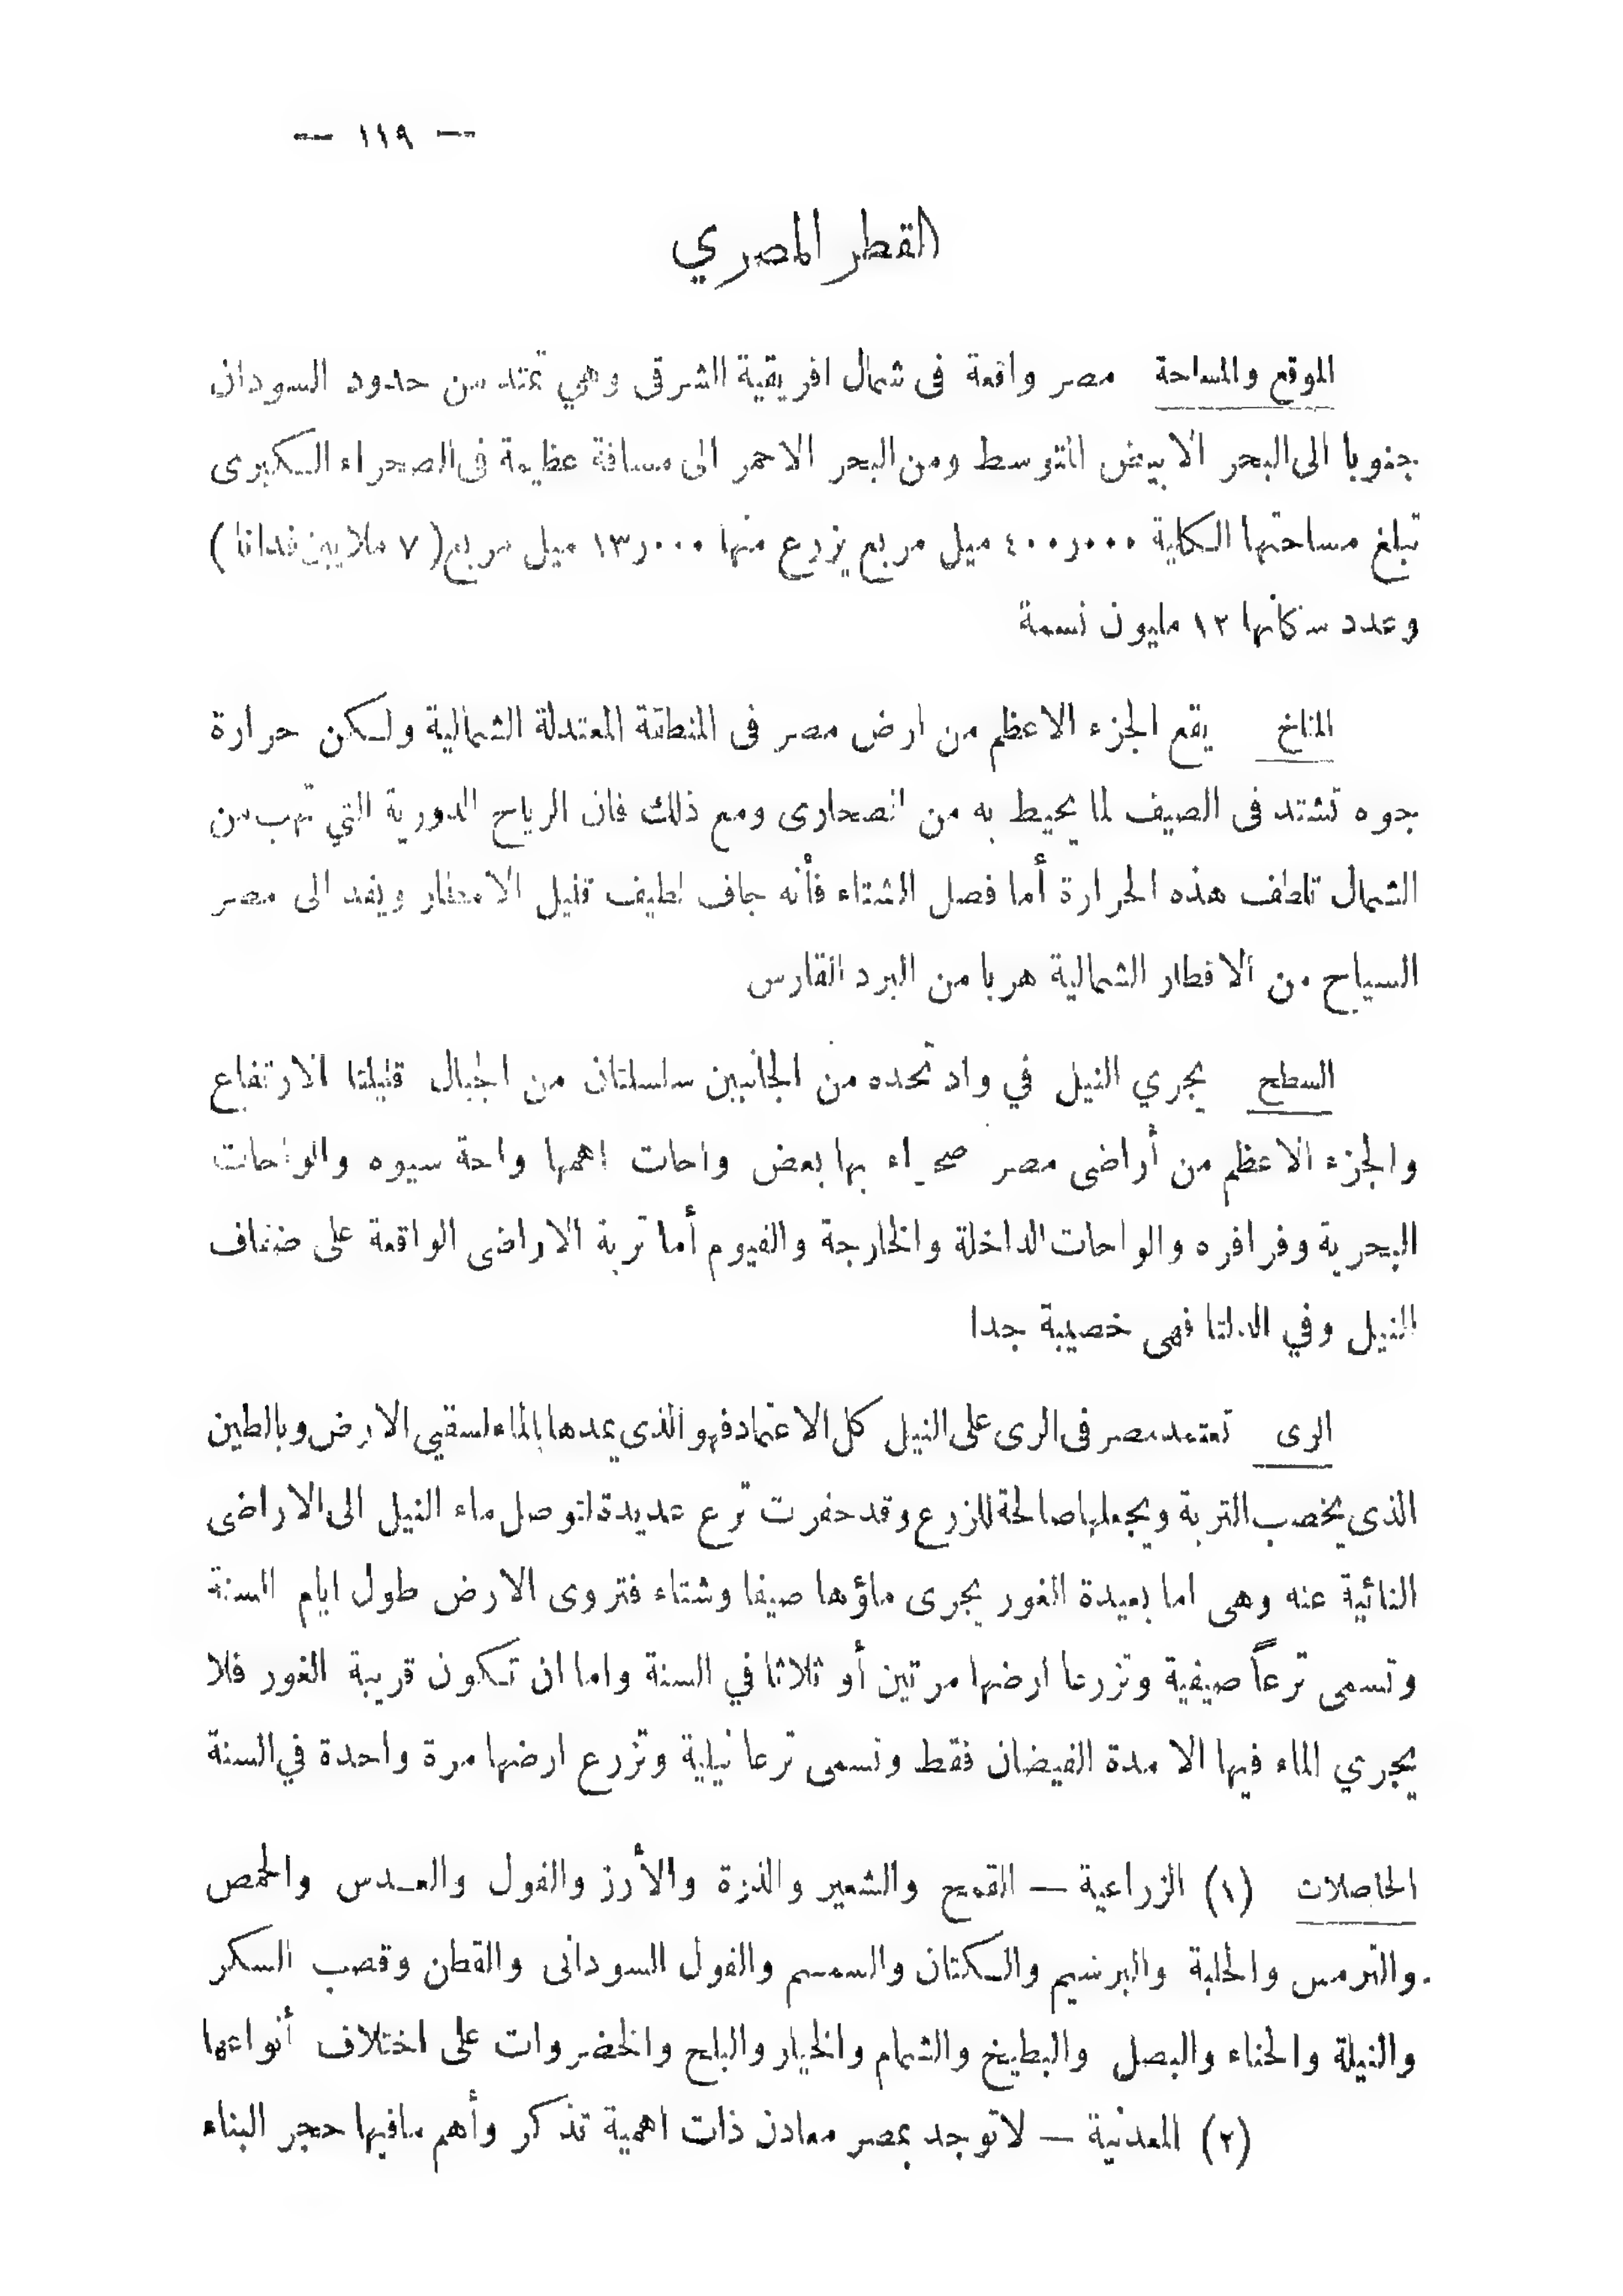 — ١١٩ —
القطر المصري
الموقع والمساحة مصر واقعة فى شمال افريقية الشرقى وهي تمتد من حدود السودان
جنوبا الى البحر الابيض المتوسط ومن البحر الاحمر الى مسافة عظيمة فى الصحراء الكبرى
تبلغ مساحتها الكلية ٤٠٠ر٠٠٠ ميل مربع يزرع منها ١٣ر٠٠٠ ميل مربع (٧ ملايين فدانا)
وعدد سكانها ١٣ مليون نسمة
المناخ يقع الجزء الاعظم من ارض مصر فى المنطقة المعتدلة الشمالية ولكن حرارة
جوه تشتد فى الصيف لما يحيط به من الصحارى ومع ذلك فان الرياح الدورية التي تهب من
الشمال تلطف هذه الحرارة أما فصل الشتاء فأنه جاف لطيف قليل الامطار ويفد الى مصر
السياح من الاقطار الشمالية هربا من البرد القارس
السطح يجري النيل في واد تحده من الجانبين سلسلتان من الجبال قليلتا الارتفاع
والجزء الاعظم من أراضى مصر صحراء بها بعض واحات اهمها واحة سيوه والواحات
البحرية وفرافره والواحات الداخلة والخارجة والفيوم أما تربة الاراضى الواقعة على ضفاف
النيل وفي الدلتا فهى خصيبة جدا
الرى تعتمد مصر فى الرى على النيل كل الاعتماد فهو الذى يمدها بالماء لسقي الارض وبالطين
الذى يخصب التربة ويجعلها صالحة للزرع وقد حفرت ترع عديدة لتوصل ماء النيل الى الاراضى
النائية عنه وهى اما بعيدة الغور يجرى ماؤها صيفا وشتاء فتروى الارض طول ايام السنة
وتسمى ترعاً صيفية وتزرعا ارضها مرتين أو ثلاثا في السنة واما ان تكون قريبة الغور فلا
يجري الماء فيها الا مدة الفيضان فقط وتسمى ترعا نيلية وتزرع ارضها مرة واحدة في السنة
الحاصلات (١) الزراعية — القمح والشعير والذرة والأرز والفول والعدس والحمص
والترمس والحلبة والبرسيم والكتان والسمسم والفول السودانى والقطن وقصب السكر
والنيلة والحناء والبصل والبطيخ والشمام والخيار والبلح والخضروات على اختلاف أنواعها
(٢) المعدنية — لاتوجد بمصر معادن ذات اهمية تذكر وأهم مافيها حجر البناء